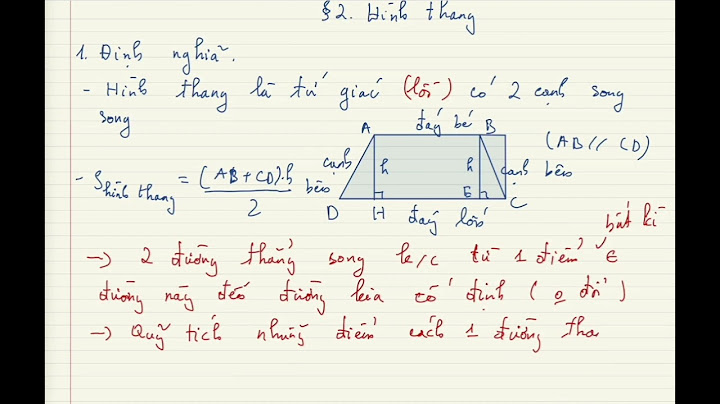 §2. Hình thang
1. Định nghĩa.
- Hình thang là tứ giác (lồi) có 2 cạnh song
song
A đáy bé B (AB // CD)
cạnh bên h h cạnh bên
- S hình thang = (AB + CD).h / 2
D H đáy lớn E C
bất kì
→ 2 đường thẳng song k/c từ 1 điểm ∈
đường này đến đường kia cố định (o đổi)
→ Quỹ tích những điểm cách 1 đường tha